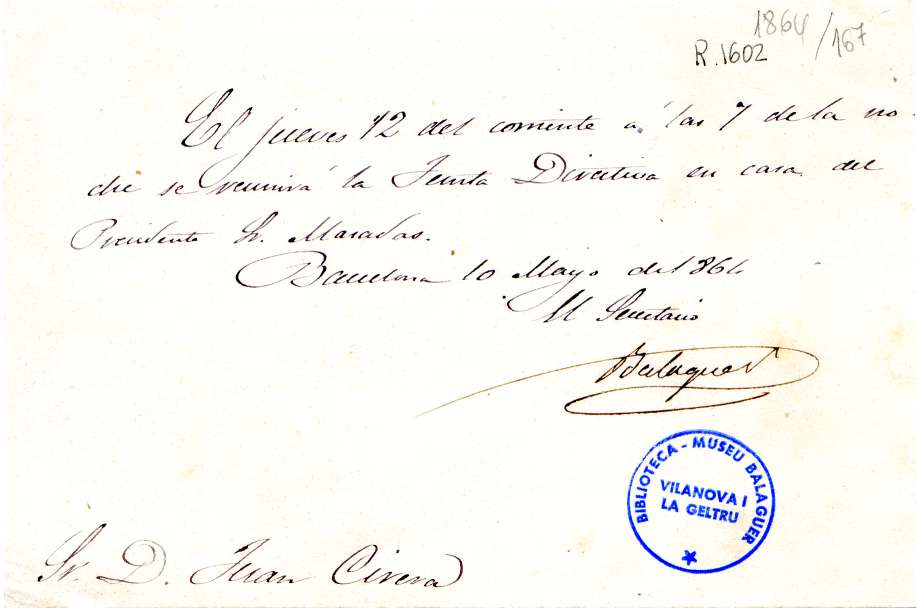 1864/167
R.1602
El jueves 12 del corriente á las 7 de la no-
che se reunirá la Junta Directiva en casa del
Presidente Sr. Masadas.
Barcelona 10 Mayo de 1864
El Secretario
Balaguer
BIBLIOTECA - MUSEU BALAGUER
VILANOVA I
LA GELTRU
Sr. D. Juan Civera